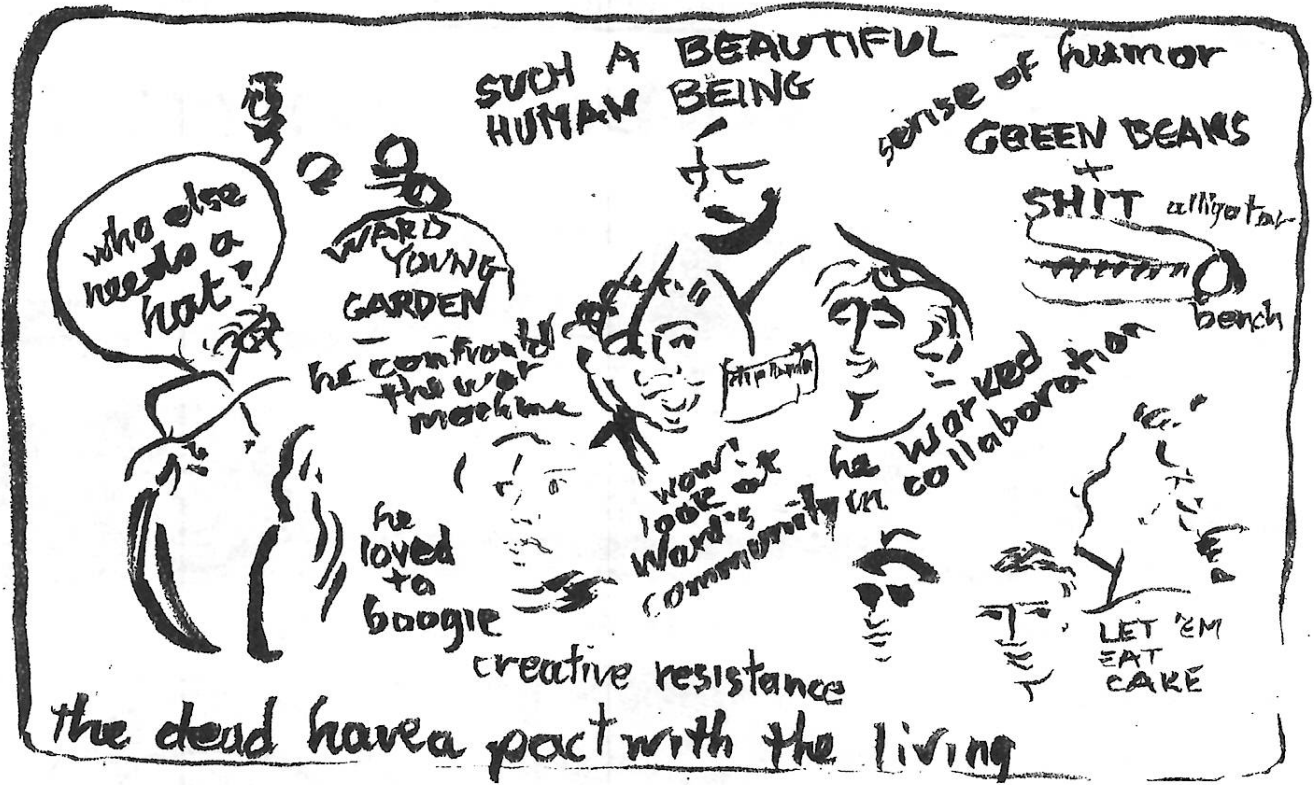 SUCH A BEAUTIFUL
HUMAN BEING
sense of humor
GREEN BEANS
+
SHIT alligator
bench
who else
needs a
hat?
WARD
YOUNG
GARDEN
he confronted
the war
machine
he worked
in collaboration
wow!
look at
Ward's
community
he
loved
to
boogie
creative resistance
LET 'EM
EAT
CAKE
the dead have a pact with the living